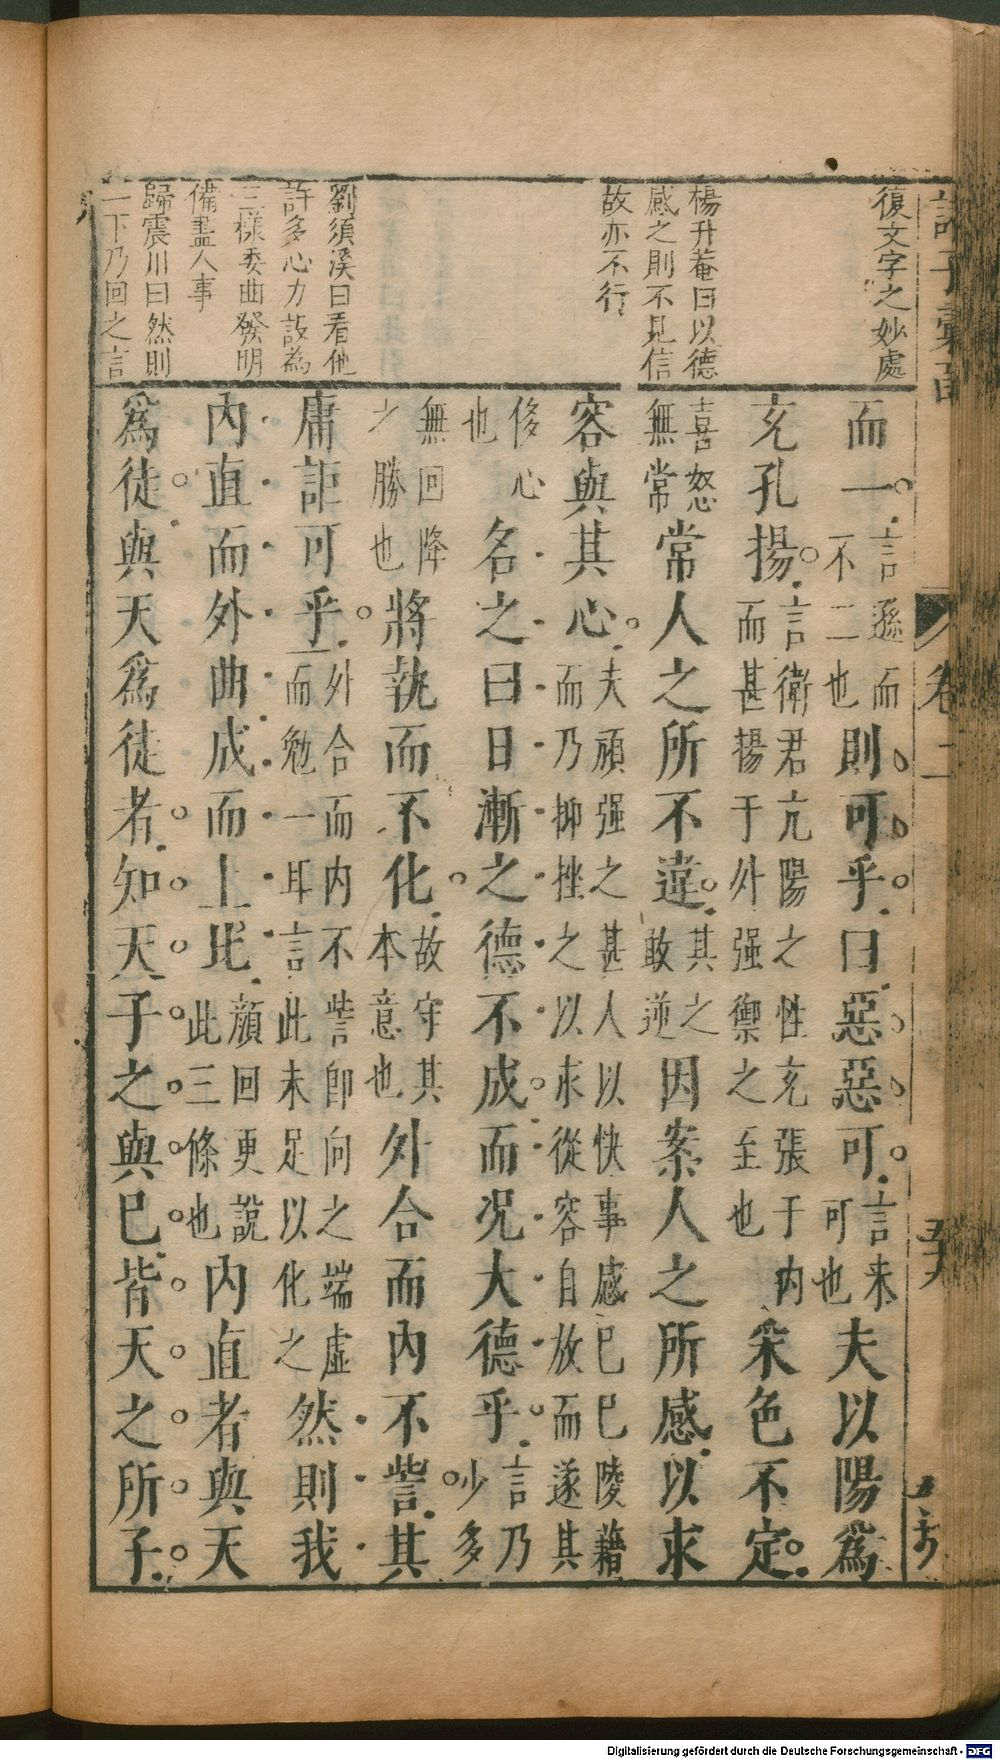 諸子彙函
卷二
復文字之妙處
楊升菴曰以德
感之則不見信
故亦不行
劉須溪曰看他
許多心力設為
三樣委曲發明
備盡人事
歸震川曰然則
一下乃回之言
而一。言遜而不二也則可乎。曰惡惡可。言未可也夫以陽爲
充孔揚。言衛君亢陽之性充張于内而甚揚于外强禦之至也采色不定。
喜怒無常常人之所不違。其之敢逆因案人之所感以求
容與其心。夫頑强之甚人以快事感已已陵藉而乃抑挫之以求從容自放而遂其
侈心也名之曰日漸之德不成。而况大德乎。言乃少多
無回降之勝也將執而不化。故守其本意也外合而内不訾。其
庸詎可乎。外合而内不訾即向之端虛而勉一耳言此未足以化之然則我
内直而外曲成而上比顔回更說此三條也内直者與天
爲徒。與天爲徒者知天子之與已皆天之所子。
Digitalisierung gefördert durch die Deutsche Forschungsgemeinschaft - DFG